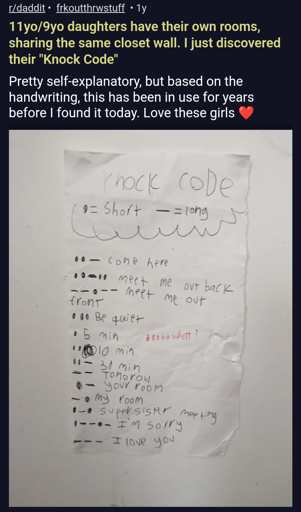 r/daddit • frkoutthrwstuff • 1y
11yo/9yo daughters have their own rooms,
sharing the same closet wall. I just discovered
their "Knock Code"
Pretty self-explanatory, but based on the
handwriting, this has been in use for years
before I found it today. Love these girls ❤️
Knock code
•= Short —=long
••— come here
meet me out back
meet me out
front
••• Be quiet
• 5 min
•• 10 min
30 min
Tomorow
•— your room
—• my room
•—• super sister meeting
I'm sorry
——— I love you